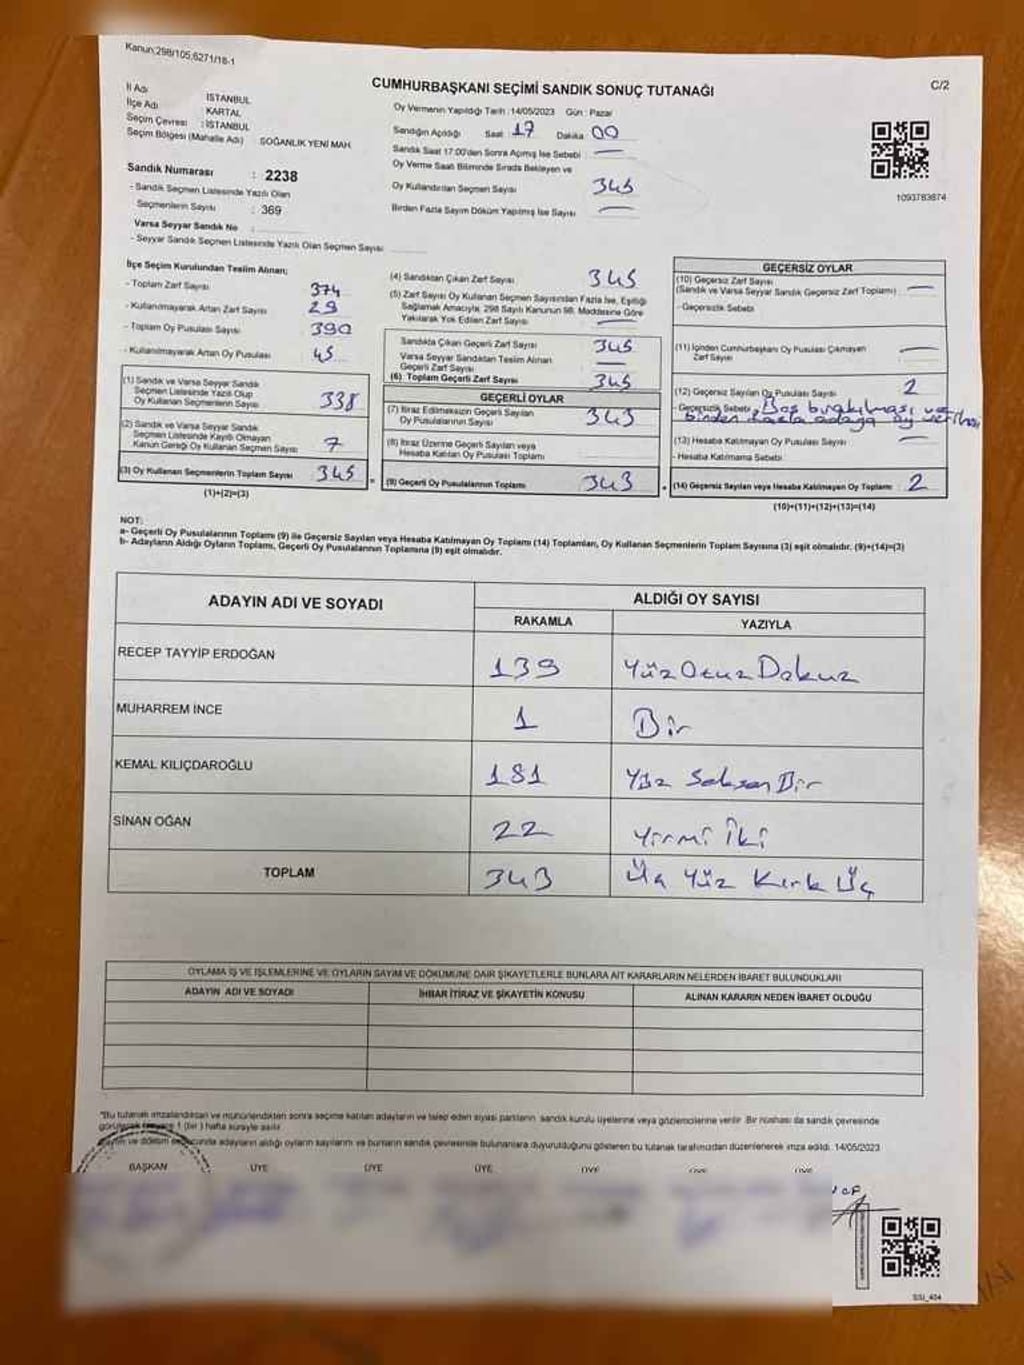 Kanun;298/105,6271/18-1
CUMHURBAŞKANI SEÇİMİ SANDIK SONUÇ TUTANAĞI
C/2
İl Adı : İSTANBUL
İlçe Adı : KARTAL
Seçim Çevresi : İSTANBUL
Seçim Bölgesi (Mahalle Adı) SOĞANLIK YENİ MAH.
Sandık Numarası : 2238
- Sandık Seçmen Listesinde Yazılı Olan
Seçmenlerin Sayısı : 369
Varsa Seyyar Sandık No :
- Seyyar Sandık Seçmen Listesinde Yazılı Olan Seçmen Sayısı
Oy Vermenin Yapıldığı Tarih : 14/05/2023 Gün : Pazar
Sandığın Açıldığı Saat 17 Dakika 00
Sandık Saat 17:00'den Sonra Açımış İse Sebebi —
Oy Verme Saati Bitiminde Sırada Bekleyen ve
Oy Kullandırılan Seçmen Sayısı 345
Birden Fazla Sayım Döküm Yapılmış İse Sayısı —
1093783874
İlçe Seçim Kurulundan Teslim Alınan;
- Toplam Zarf Sayısı 374
- Kullanılmayarak Artan Zarf Sayısı 29
- Toplam Oy Pusulası Sayısı 390
- Kullanılmayarak Artan Oy Pusulası 45
(1) Sandık ve Varsa Seyyar Sandık
Seçmen Listesinde Yazılı Olup
Oy Kullanan Seçmenlerin Sayısı 338
(2) Sandık ve Varsa Seyyar Sandık
Seçmen Listesinde Kayıtlı Olmayan
Kanun Gereği Oy Kullanan Seçmen Sayısı 7
(3) Oy Kullanan Seçmenlerin Toplam Sayısı 345
(1)+(2)=(3)
(4) Sandıktan Çıkan Zarf Sayısı 345
(5) Zarf Sayısı Oy Kullanan Seçmen Sayısından Fazla İse, Eşitliği
Sağlamak Amacıyla; 298 Sayılı Kanunun 98. Maddesine Göre
Yakılarak Yok Edilen Zarf Sayısı —
Sandıkta Çıkan Geçerli Zarf Sayısı 345
Varsa Seyyar Sandıktan Teslim Alınan
Geçerli Zarf Sayısı —
(6) Toplam Geçerli Zarf Sayısı 345
GEÇERLİ OYLAR
(7) İtiraz Edilmeksizin Geçerli Sayılan
Oy Pusulalarının Sayısı 343
(8) İtiraz Üzerine Geçerli Sayılan veya
Hesaba Katılan Oy Pusulası Toplamı
(9) Geçerli Oy Pusulalarının Toplamı 343
GEÇERSİZ OYLAR
(10) Geçersiz Zarf Sayısı
(Sandık ve Varsa Seyyar Sandık Geçersiz Zarf Toplamı) —
- Geçersizlik Sebebi
(11) İçinden Cumhurbaşkanı Oy Pusulası Çıkmayan
Zarf Sayısı —
(12) Geçersiz Sayılan Oy Pusulası Sayısı 2
- Geçersizlik Sebebi Boş bırakılması ve
birden fazla adaya oy verilmesi
(13) Hesaba Katılmayan Oy Pusulası Sayısı —
- Hesaba Katılmama Sebebi
(14) Geçersiz Sayılan veya Hesaba Katılmayan Oy Toplamı 2
(10)+(11)+(12)+(13)=(14)
NOT:
a- Geçerli Oy Pusulalarının Toplamı (9) ile Geçersiz Sayılan veya Hesaba Katılmayan Oy Toplamı (14) Toplamları, Oy Kullanan Seçmenlerin Toplam Sayısına (3) eşit olmalıdır. (9)+(14)=(3)
b- Adayların Aldığı Oyların Toplamı, Geçerli Oy Pusulalarının Toplamına (9) eşit olmalıdır.
ADAYIN ADI VE SOYADI
ALDIĞI OY SAYISI
RAKAMLA YAZIYLA
RECEP TAYYİP ERDOĞAN 139 Yüz Otuz Dokuz
MUHARREM İNCE 1 Bir
KEMAL KILIÇDAROĞLU 181 Yüz Seksen Bir
SİNAN OĞAN 22 Yirmi İki
TOPLAM 343 Üç Yüz Kırk Üç
OYLAMA İŞ VE İŞLEMLERİNE VE OYLARIN SAYIM VE DÖKÜMÜNE DAİR ŞİKAYETLERLE BUNLARA AİT KARARLARIN NELERDEN İBARET BULUNDUKLARI
ADAYIN ADI VE SOYADI İHBAR İTİRAZ VE ŞİKAYETİN KONUSU ALINAN KARARIN NEDEN İBARET OLDUĞU
*Bu tutanak imzalandıktan ve mühürlendikten sonra seçime katılan adayların ve talep eden siyasi partilerin sandık kurulu üyelerine veya gözlemcilerine verilir. Bir nüshası da sandık çevresinde
1 (bir) hafta süreyle asılır.
Sayım ve döküm sonucunda adayların aldığı oyların sayılarını ve bunların sandık çevresinde bulunanlara duyurulduğunu gösteren bu tutanak tarafımızdan düzenlenerek imza edildi. 14/05/2023
BAŞKAN ÜYE ÜYE ÜYE ÜYE ÜYE ÜYE
SSI_404